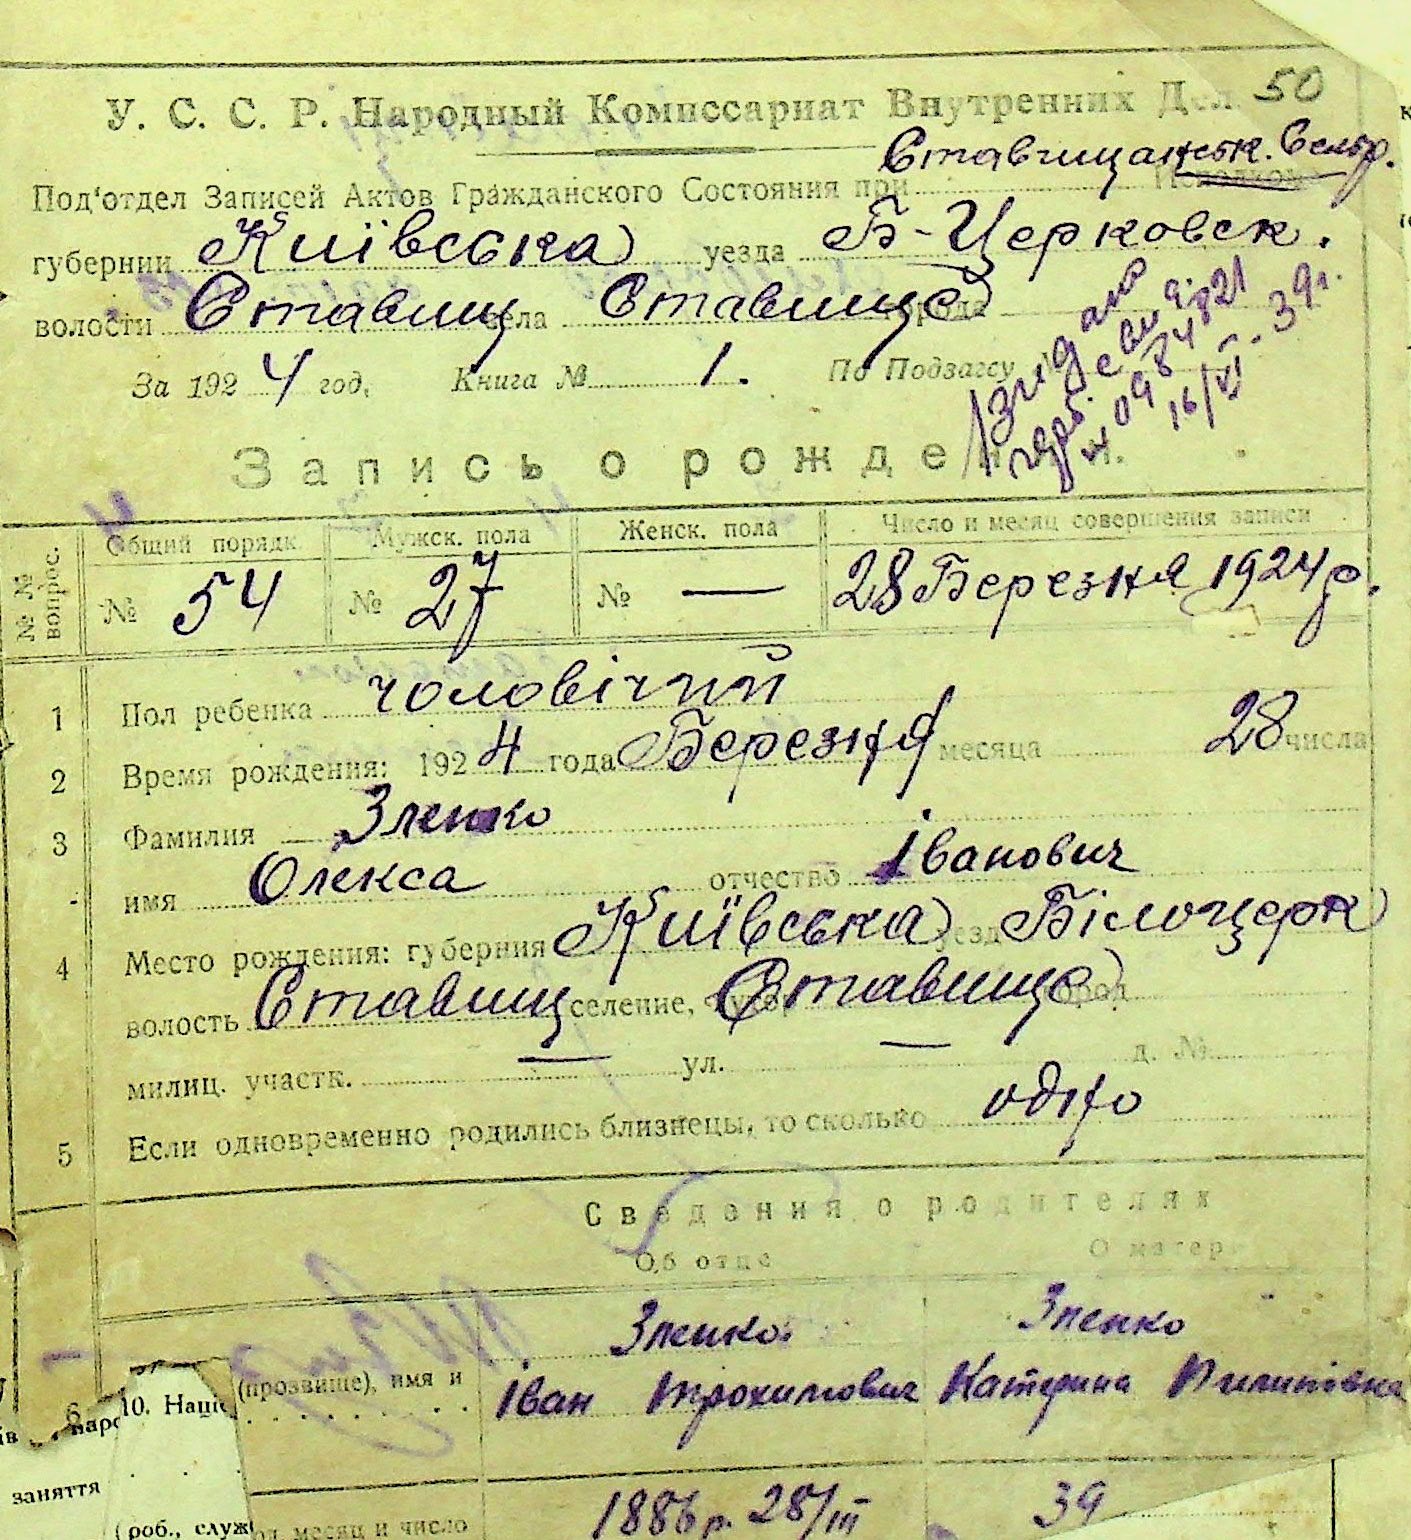 50
У. С. С. Р. Народный Комиссариат Внутренних Дел
Ставищанськ. Сельр.
Под'отдел Записей Актов Гражданского Состояния при Исполком
губернии Київська уезда Б-Церковск.
волости Ставищ села Ставище города
За 1924 год. Книга № 1. По Подзагсу
16/VI - 39 г.
Запись о рожден
№№ вопрос.
Общий порядк. Мужск. пола Женск. пола Число и месяц совершения записи
№ 54 № 27 № — 28 Березня 1924 р.
1 Пол ребенка чоловічий
2 Время рождения: 1924 года Березня месяца 28 числа
3 Фамилия Зленко
имя Олекса отчество Іванович
4 Место рождения: губерния Київська уезд Білоцерк
волость Ставищ селение, хутор Ставище город
милиц. участк. — ул. — д. №
5 Если одновременно родились близнецы, то сколько одно
Сведения о родителях
Об отце О матери
Зленко Зленко
6 (прозвище), имя и Іван Трохимович Катерина Пилипівна
10. Націо
наро
заняття
(роб., служ
месяц и число 1886 р. 28/III 39